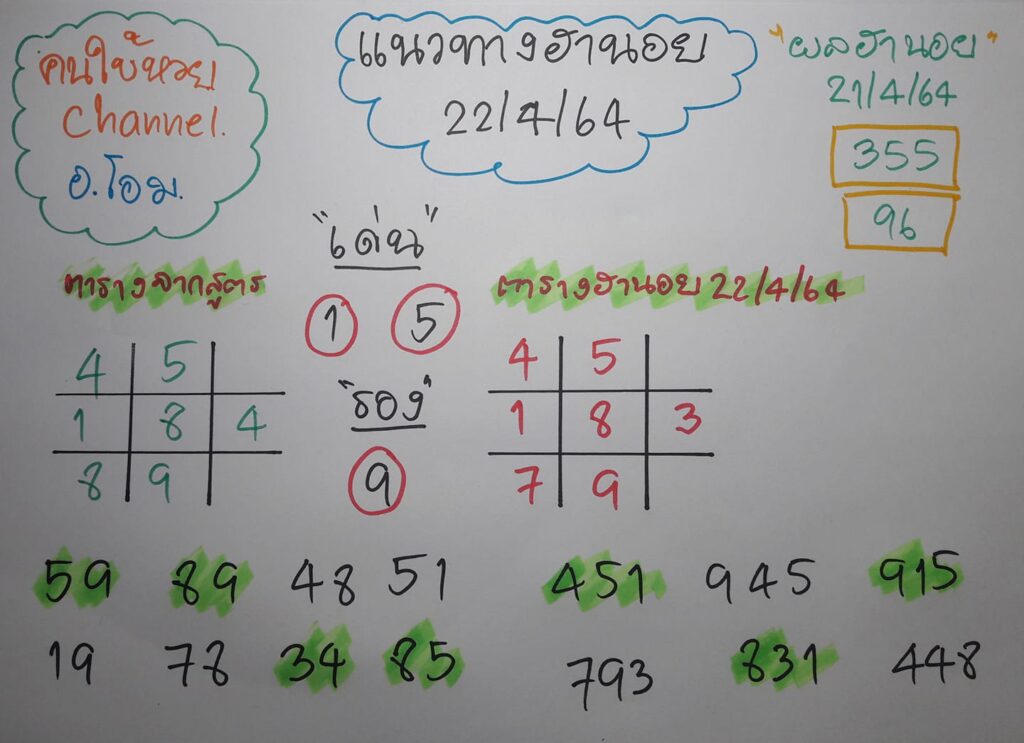 คนใบ้หวย
Channel.
อ.โอม.
แนวทางฮานอย
22/4/64
"ผลฮานอย"
21/4/64
355
96
"เด่น"
1 5
"รอง"
9
ตารางจากสูตร
4 5
1 8 4
8 9
ตารางฮานอย 22/4/64
4 5
1 8 3
7 9
59 89 48 51
19 78 34 85
451 945 915
793 831 448